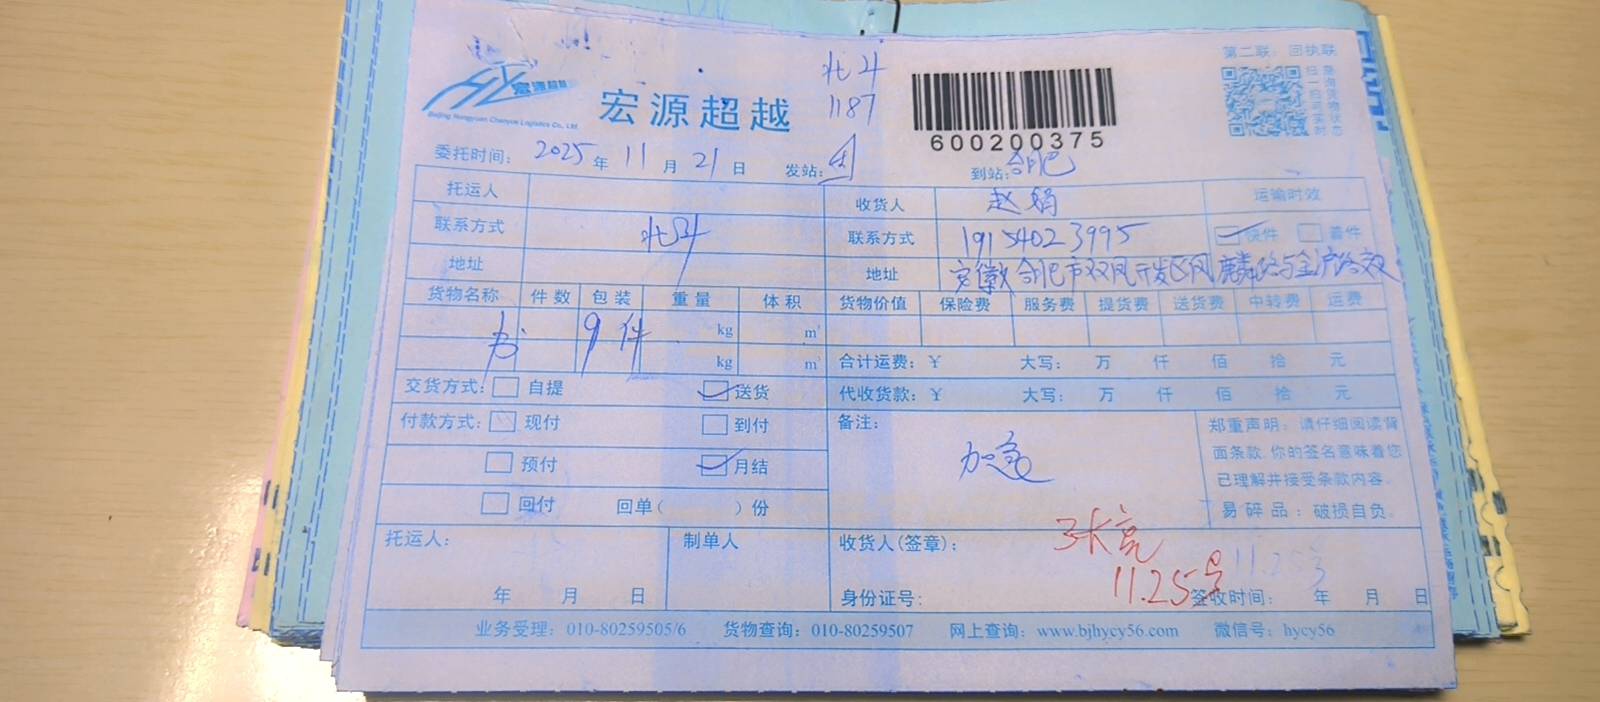 第二联：回执联
北斗
1187
宏源超越
宏源超越
Beijing Hongyuan Chaoyue Logistics Co., Ltd
600200375
委托时间：2025年11月21日 发站： 到站：合肥
托运人 收货人 赵娟 运输时效
联系方式 北斗 联系方式 19154023995 快件 普件
地址 地址 安徽合肥市双凤开发区凤麟路与金沪路交
货物名称 件数 包装 重量 体积 货物价值 保险费 服务费 提货费 送货费 中转费 运费
书 9件 kg m³
kg m³ 合计运费：¥ 大写： 万 仟 佰 拾 元
交货方式： 自提 送货 代收货款：¥ 大写： 万 仟 佰 拾 元
付款方式： 现付 到付 备注： 加急
预付 月结
回付 回单（ ）份
郑重声明：请仔细阅读背
面条款，你的签名意味着您
已理解并接受条款内容。
易碎品：破损自负。
托运人： 制单人 收货人(签章)： 张亮
11.25号
11.25号
年 月 日 身份证号： 签收时间： 年 月 日
业务受理：010-80259505/6 货物查询：010-80259507 网上查询：www.bjhycy56.com 微信号：hycy56